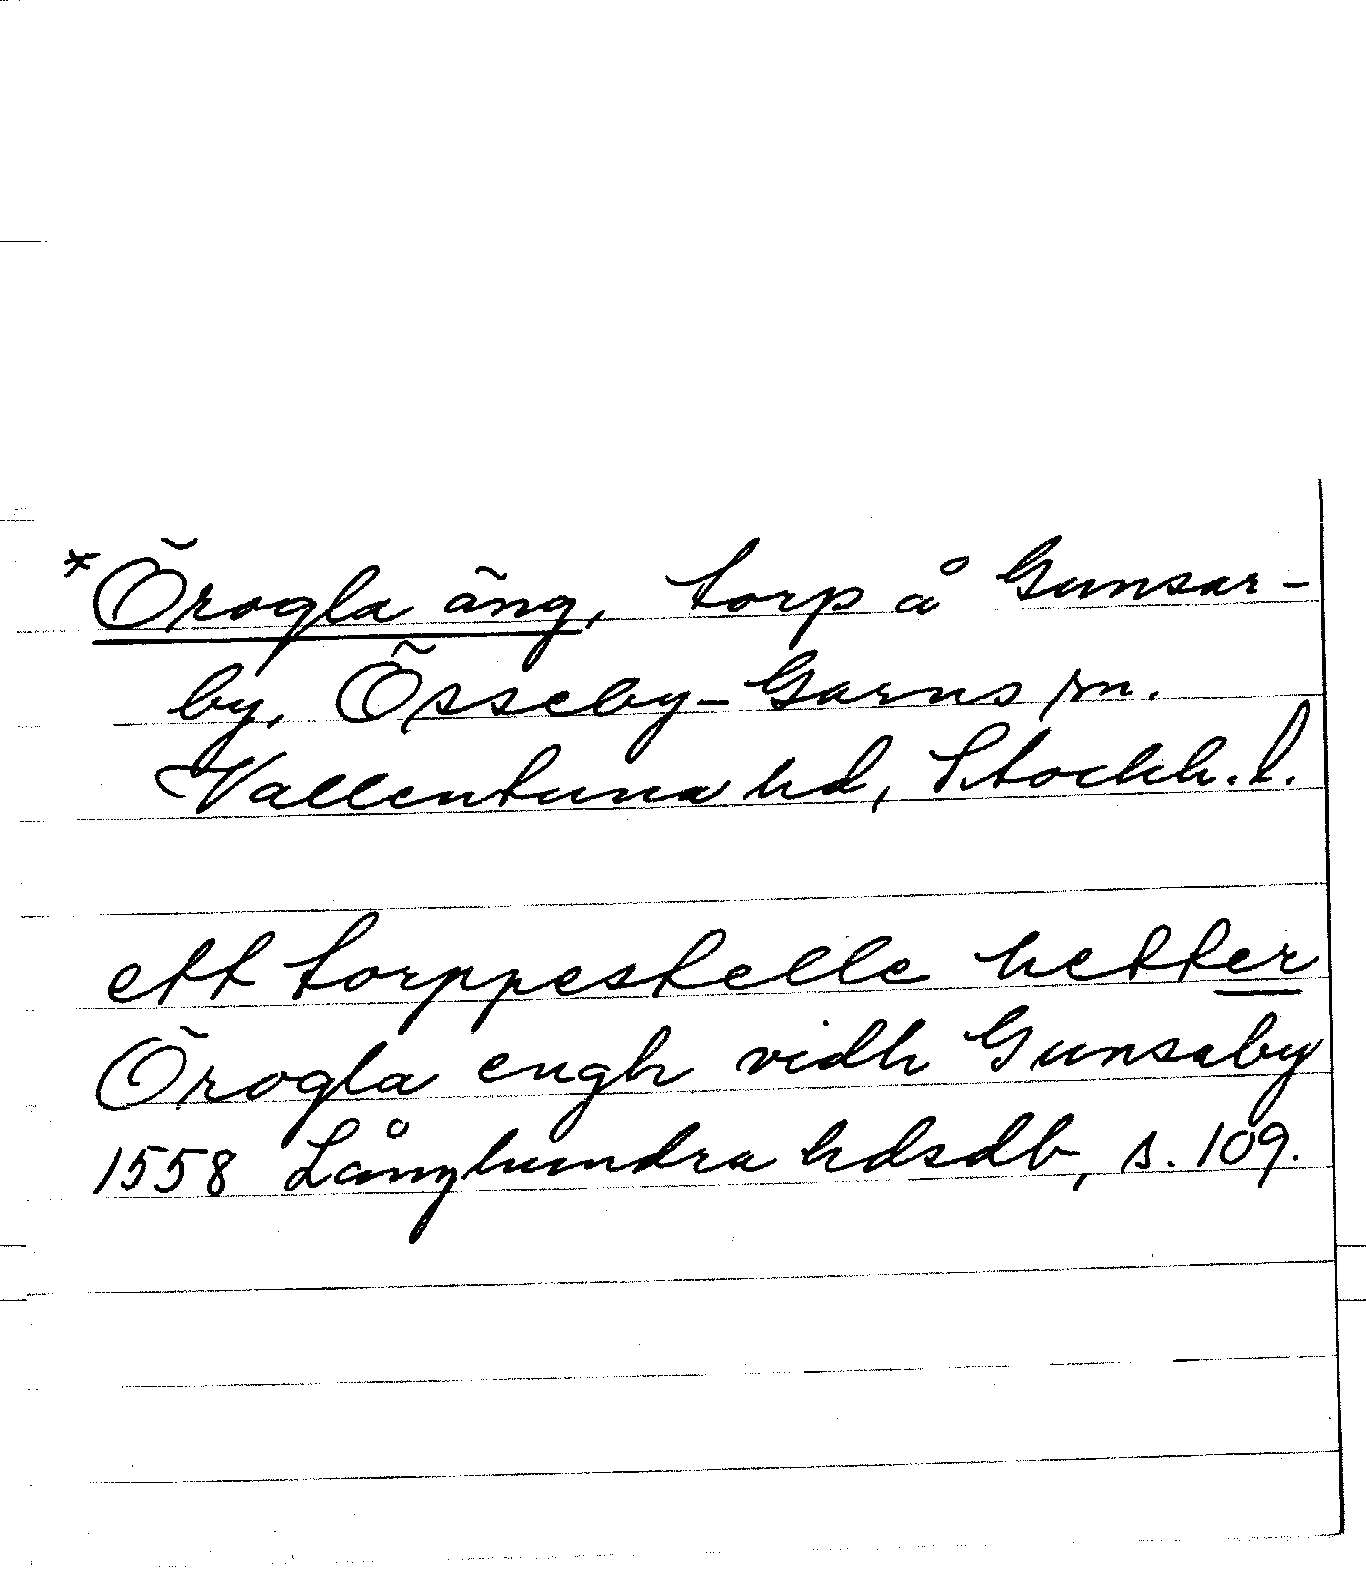 *Örogla äng, torp å Gunsar-
by, Össeby-Garns sn.
Vallentuna hd, Stockh. l.
ett torppestelle hetter
Örogla engh vidh Gunsaby
1558 Långhundra hdsdb, s. 109.